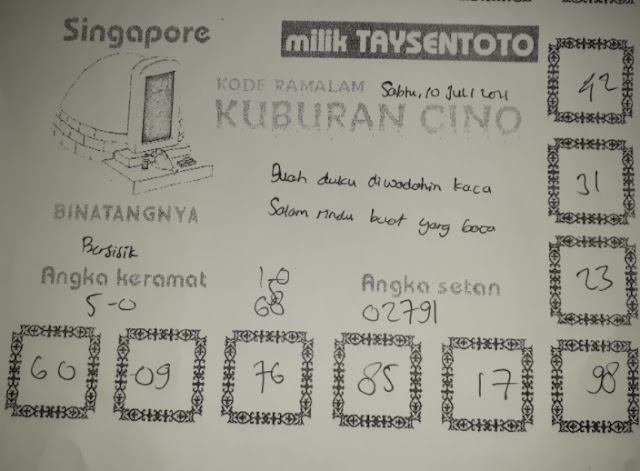 Singapore
milik TAYSENTOTO
KODE RAMALAM Sabtu, 10 Juli 2021
KUBURAN CINO
42
Buah duku diwadahin kaca
Salam rindu buat yang baca
31
BINATANGNYA
Bersisik
Angka keramat
5-0
1-0
8
68
Angka setan
02791
23
60
09
76
85
17
98